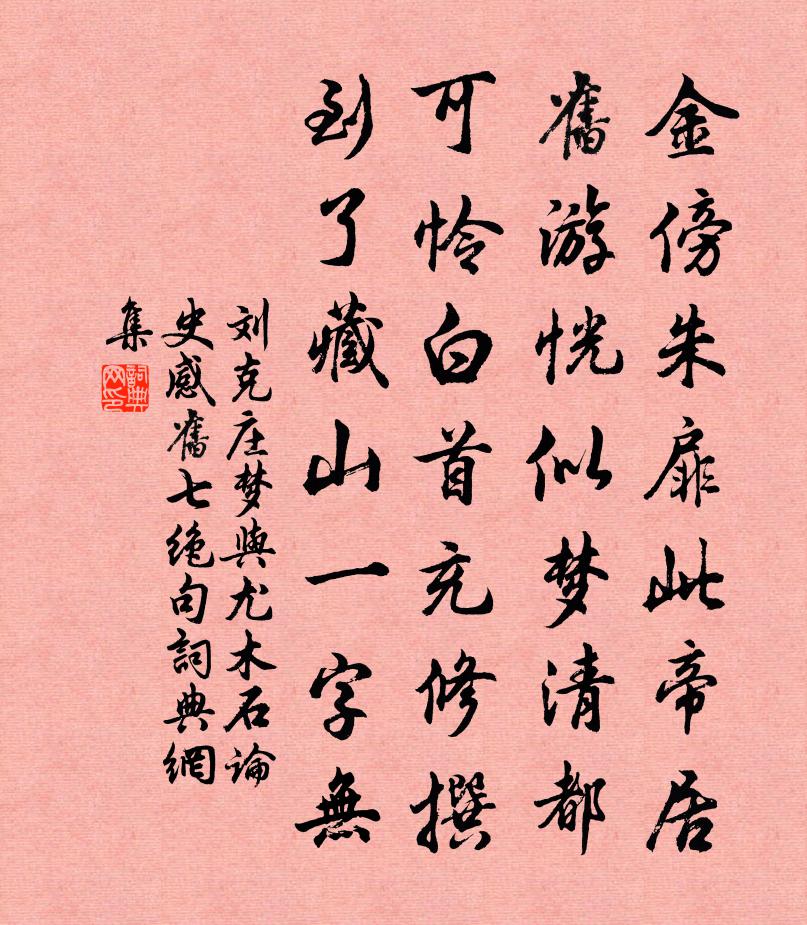 金傍朱扉此帝居
舊游恍似梦清都
可怜白首充修撰
到了藏山一字無
刘克庄梦與尤木石論
史感舊七绝句詞典網
集
詞典网印